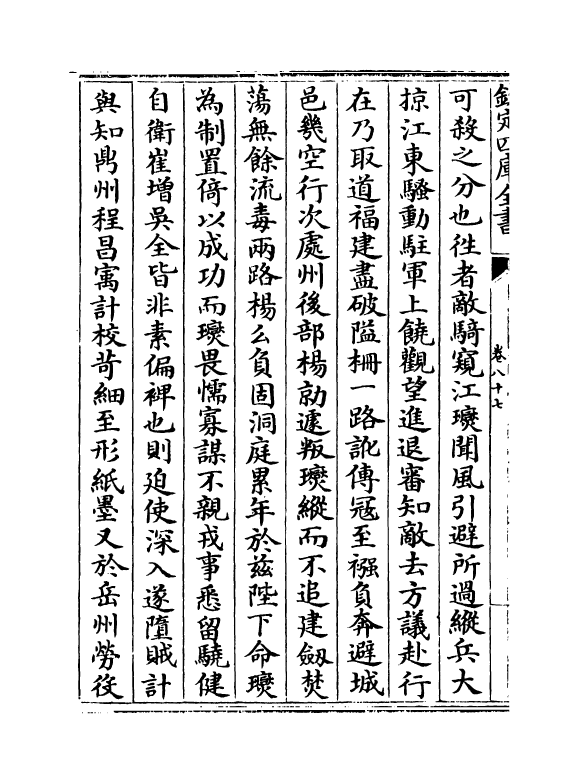 欽定四庫全書
卷八十七
可殺之分也徃者敵騎窺江𤫉聞風引避所過縱兵大
掠江東騷動駐軍上饒觀望進退審知敵去方議赴行
在乃取道福建盡破隘柵一路訛傳冦至襁負奔避城
邑幾空行次處州後部楊勍遽叛𤫉縱而不追建劒焚
蕩無餘流毒兩路楊么負固洞庭累年於兹陛下命𤫉
為制置倚以成功而𤫉畏懦寡謀不親戎事悉留驍健
自衛崔增吳全皆非素偏裨也則廹使深入遂墮賊計
與知鼎州程昌寓計校苛細至形紙墨又於岳州勞役